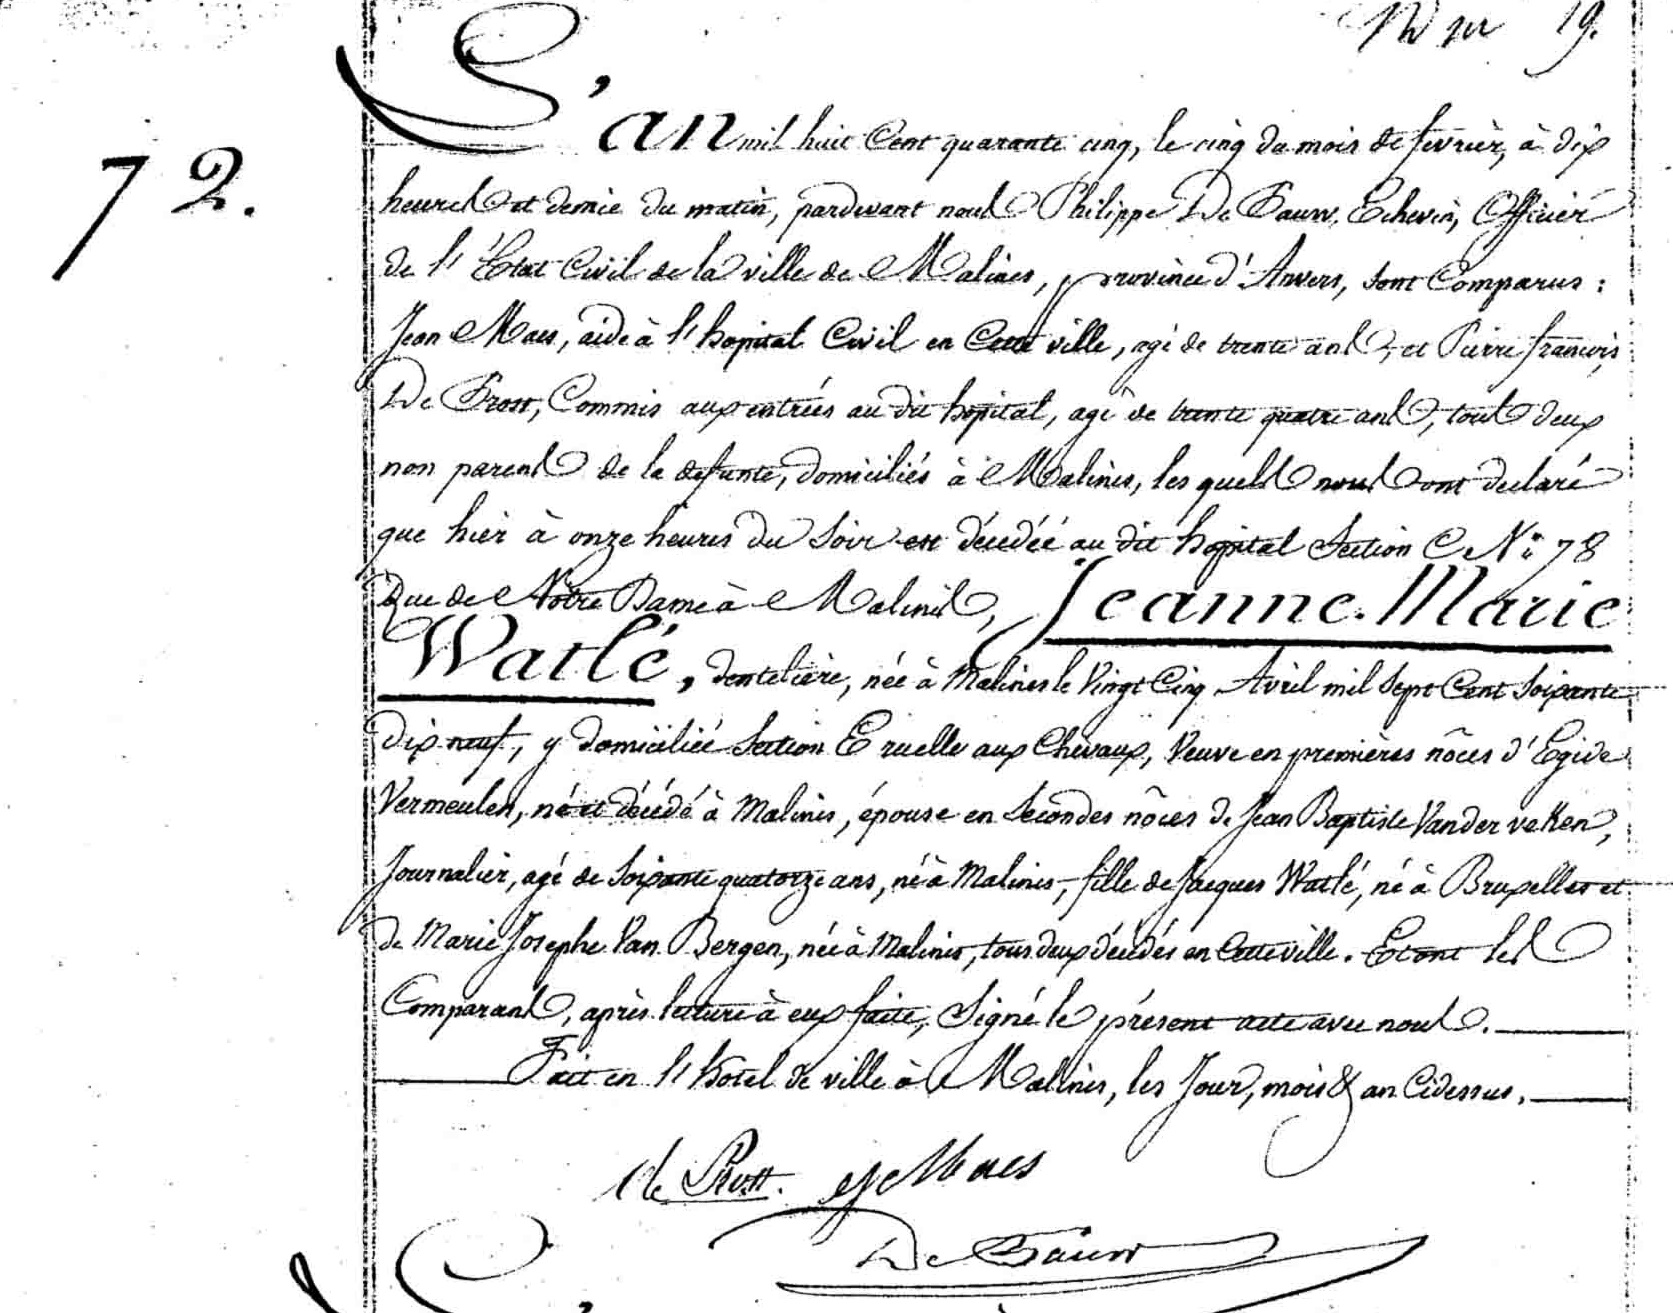 19.
72.
L'an mil huit Cent quarante cinq, le cinq du mois de fevrier, à dix
heures et demie du matin, pardevant nous Philippe De Pauw, Echevin, Officier
de l'Etat Civil de la ville de Malines, province d'Anvers, sont Comparus :
Jean Maes, aide à l'hopital Civil en Cette ville, agé de trente ans, et Pierre francois,
De Prost, Commis aux entrées au dit hopital, agé de trente quatre ans, tous deux
non parens de la defunte, domiciliés à Malines, les quels nous ont declaré
que hier à onze heures du Soir est décédée au dit hopital Section C No 78
Rue de Notre Dame à Malines, Jeanne Marie
Watlé, dentelière, née à Malines le Vingt Cinq Avril mil Sept Cent Soixante
dix neuf, y domiciliée Section E ruelle aux Chevaux, Veuve en premières nôces d'Egide
Vermeulen, né et décédé à Malines, épouse en Secondes nôces de Jean Baptiste Vander veken,
Journalier, agé de Soixante quatorze ans, né à Malines, fille de Jacques Watlé, né à Bruxelles et
de Marie Josephe Van Bergen, née à Malines, tous deux décédés en Cette ville. Etont les
Comparans, après lecture à eux faite, Signé le présent acte avec nous.
Fait en l'hotel de ville à Malines, les Jour, mois & an Cidessus.
de Prost. J Maes
De Pauw